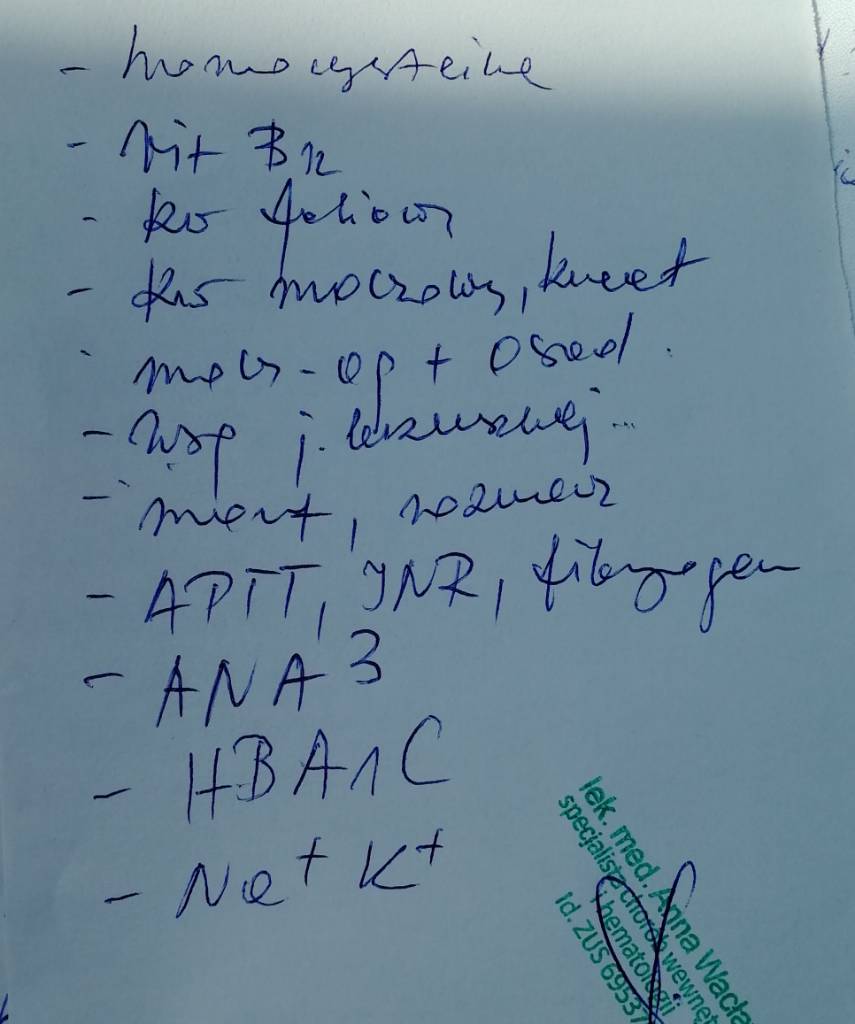 - homocysteina
- Wit B12
- kw foliowy
- kw moczowy, kreat
- mocz - og + osad.
- USG j. brzusznej
- morf, rozmaz
- APTT, INR, fibrynogen
- ANA 3
- HBA1C
- Na+ K+
lek. med. Anna Wacła
specjalista chorób wewnęt
i hematologii
id. ZUS 69537